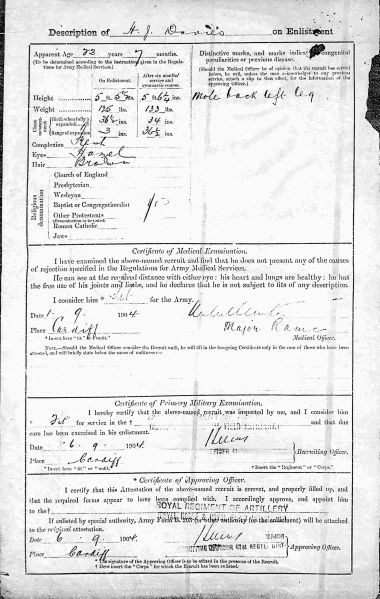 Description of H. J. Davies on Enlistment
Apparent Age 23 years 7 months.
(To be determined according to the instructions given in the Regulations for Army Medical Services.)
Distinctive marks, and marks indicating congenital
peculiarities or previous disease.
(Should the Medical Officer be of opinion that the recruit has served before, he will, unless the man acknowledges to any previous service, attach a slip to that effect, for the information of the approving Officer.)
On Enlistment.
After six months' service and gymnastic course.
Height 5 ft. ins. 5 ft. ins.
Weight lbs. 133 lbs.
Chest measurement
Girth when fully expanded ins. 34 ins.
Range of expansion 3 ins. 36½ ins.
Mole back left leg
Complexion Fresh
Eyes Hazel
Hair Brown
Religious denomination
Church of England
Presbyterian
Wesleyan
Baptist or Congregationalist
Other Protestants
(Denomination to be stated)
Roman Catholic
Jew
Certificate of Medical Examination.
I have examined the above-named recruit and find that he does not present any of the causes
of rejection specified in the Regulations for Army Medical Services.
He can see at the required distance with either eye; his heart and lungs are healthy; he has
the free use of his joints and limbs, and he declares that he is not subject to fits of any description.
I consider him * Fit for the Army.
Date 9 1904
Place Cardiff
Major Ramc
Medical Officer.
* Insert here "fit" or "unfit."
NOTE.—Should the Medical Officer consider the Recruit unfit, he will fill in the foregoing Certificate only in the case of those who have been
attested, and will briefly state below the cause of unfitness:—
Certificate of Primary Military Examination.
I hereby certify that the above-named recruit was inspected by me, and I consider him
* Fit for service in the † and that due
care has been exercised in his enlistment.
Date 6 - 9 1904
Place Cardiff
Recruiting Officer.
* Insert here "fit" or "unfit."
† Insert the "Regiment" or "Corps."
* Certificate of Approving Officer.
I certify that this Attestation of the above-named recruit is correct, and properly filled up, and
that the required forms appear to have been complied with. I accordingly approve, and appoint him
to the † ROYAL REGIMENT OF ARTILLERY
If enlisted by special authority, Army Form B. 203 (or other authority for the enlistment) will be attached
to the original attestation.
Date 6 9 1904
Place Cardiff
MAJOR
Approving Officer.
* The signature of the Approving Officer is to be affixed in the presence of the Recruit.
† Here insert the "Corps" for which the Recruit has been enlisted.